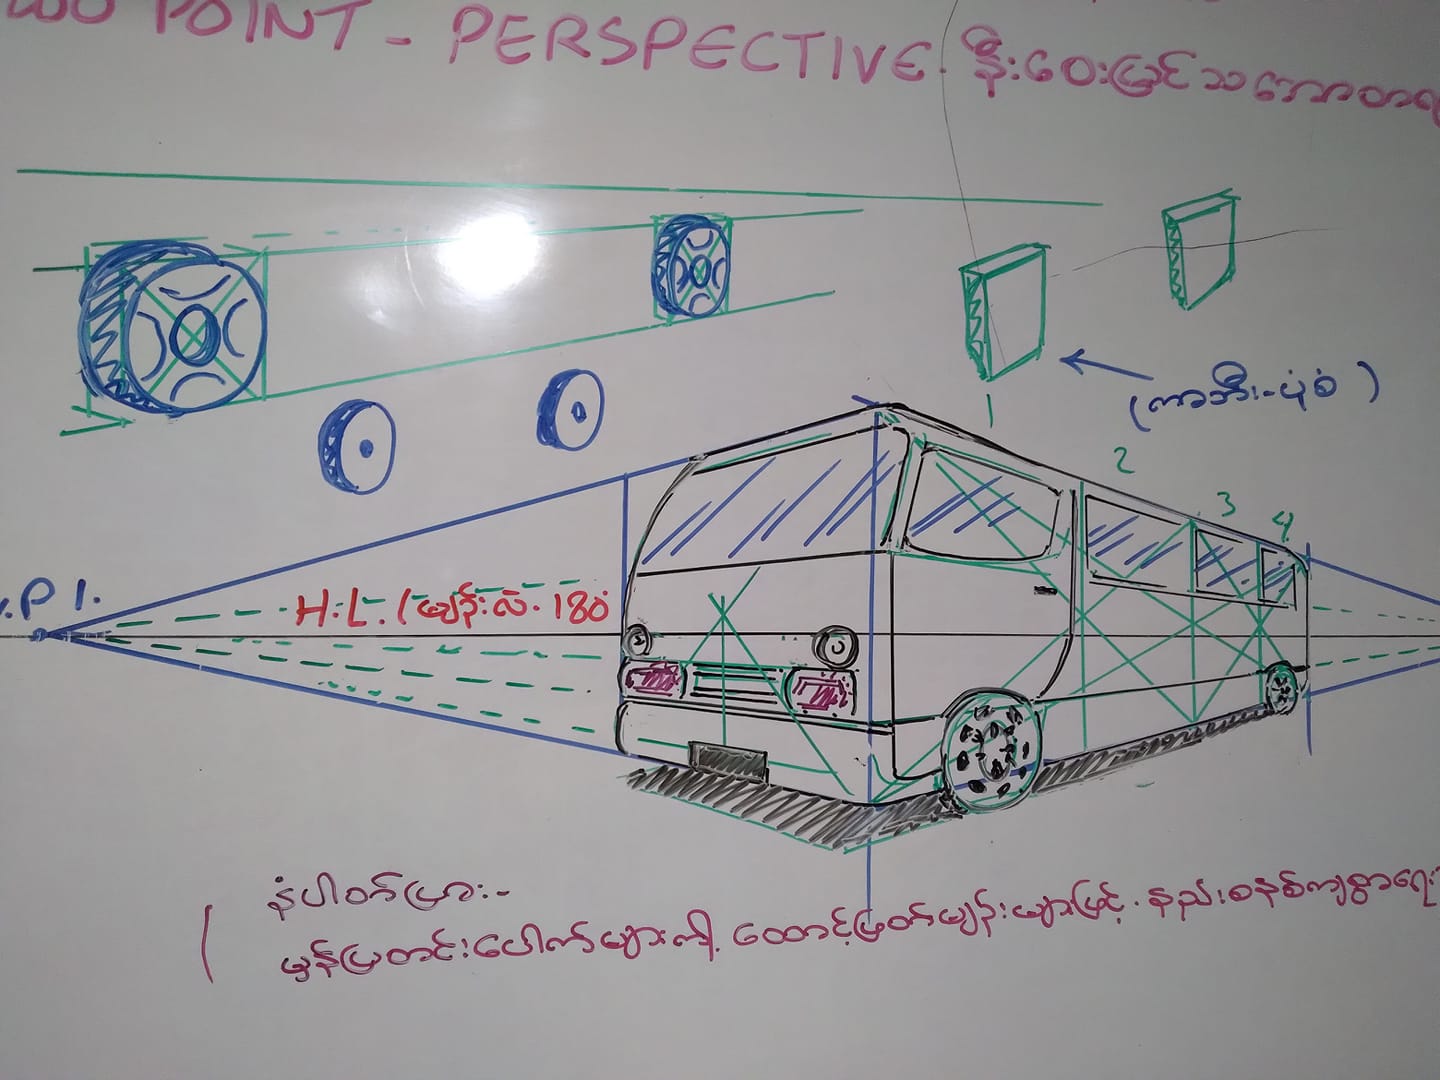 TWO POINT - PERSPECTIVE. နီးဝေးမြင်သဘောတရ
(ကားဘီး-ပုံစံ)
1
2
3
4
V.P 1.
H.L. (မျဉ်းလဲ. 180
နံပါတ်ပြား:-
မှန်ပြတင်းပေါက်များကို ထောင့်ဖြတ်မျဉ်းများဖြင့်. နည်းစနစ်ကျစွာရေး